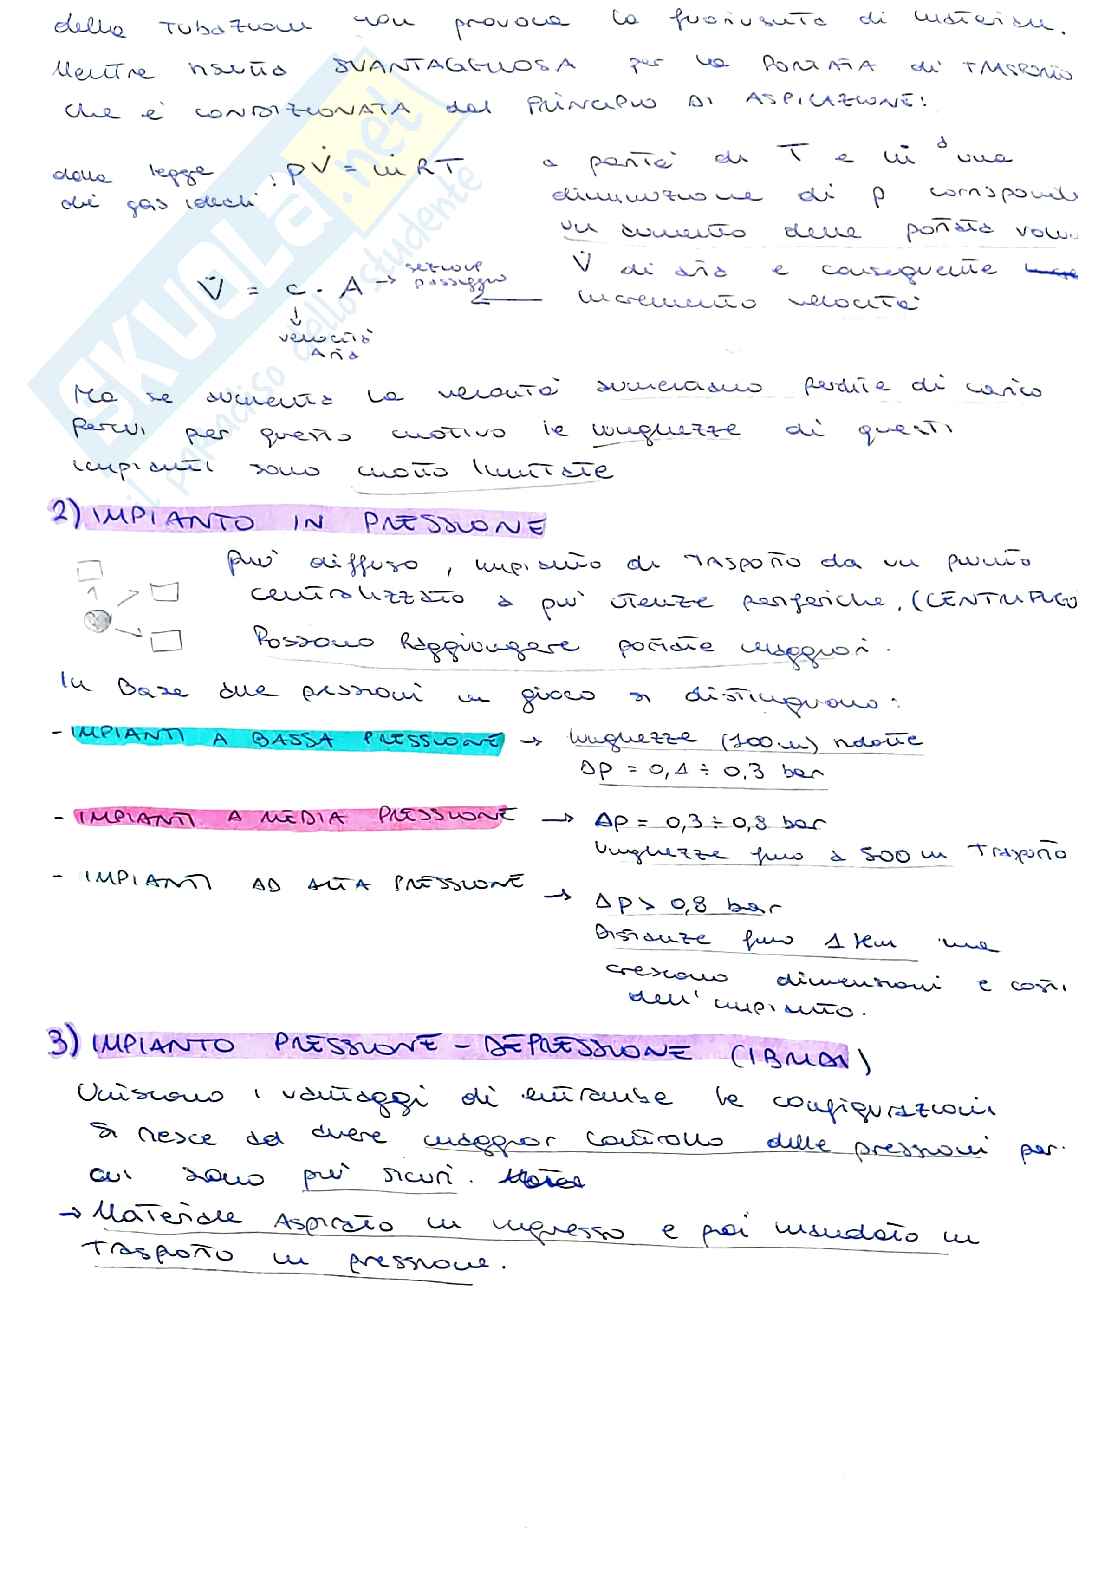 della tubazione non provoca la fuoriuscita di materiale.
Mentre risulta SVANTAGGIOSA per la PORTATA di TRASPORTO
che è CONDIZIONATA dal PRINCIPIO DI ASPIRAZIONE:
dalla legge dei gas ideali: pV̇ = ṁRT
a parità di T e ṁ d'una
diminuzione di p corrisponde
un aumento della portata volu.
V̇ di aria e conseguente
incremento velocità
V̇ = c · A → sezione passaggio
↓
velocità
aria
Ma se aumenta la velocità aumentano perdite di carico
Percui per questo motivo le lunghezze di questi
impianti sono molto limitate
2) IMPIANTO IN PRESSIONE
più diffuso, impianto di trasporto da un punto
centralizzato a più utenze periferiche, (CENTRIFUGO
Possono Raggiungere portate maggiori.
In Base alle pressioni in gioco si distinguono:
- IMPIANTI A BASSA PRESSIONE → lunghezze (100m) ridotte
Δp = 0,1 ÷ 0,3 bar
- IMPIANTI A MEDIA PRESSIONE → Δp = 0,3 ÷ 0,8 bar
lunghezze fino a 500 m Trasporto
- IMPIANTI AD ALTA PRESSIONE → Δp > 0,8 bar
Distanze fino 1 Km ma
crescono dimensioni e costi
dell'impianto.
3) IMPIANTO PRESSIONE - DEPRESSIONE (IBRIDI)
Uniscono i vantaggi di entrambe le configurazioni
Si riesce ad avere maggior controllo delle pressioni per
cui sono più sicuri.
→ Materiale Aspirato in ingresso e poi mandato in
trasporto in pressione.
SKUOLA.net
il paradiso dello studente